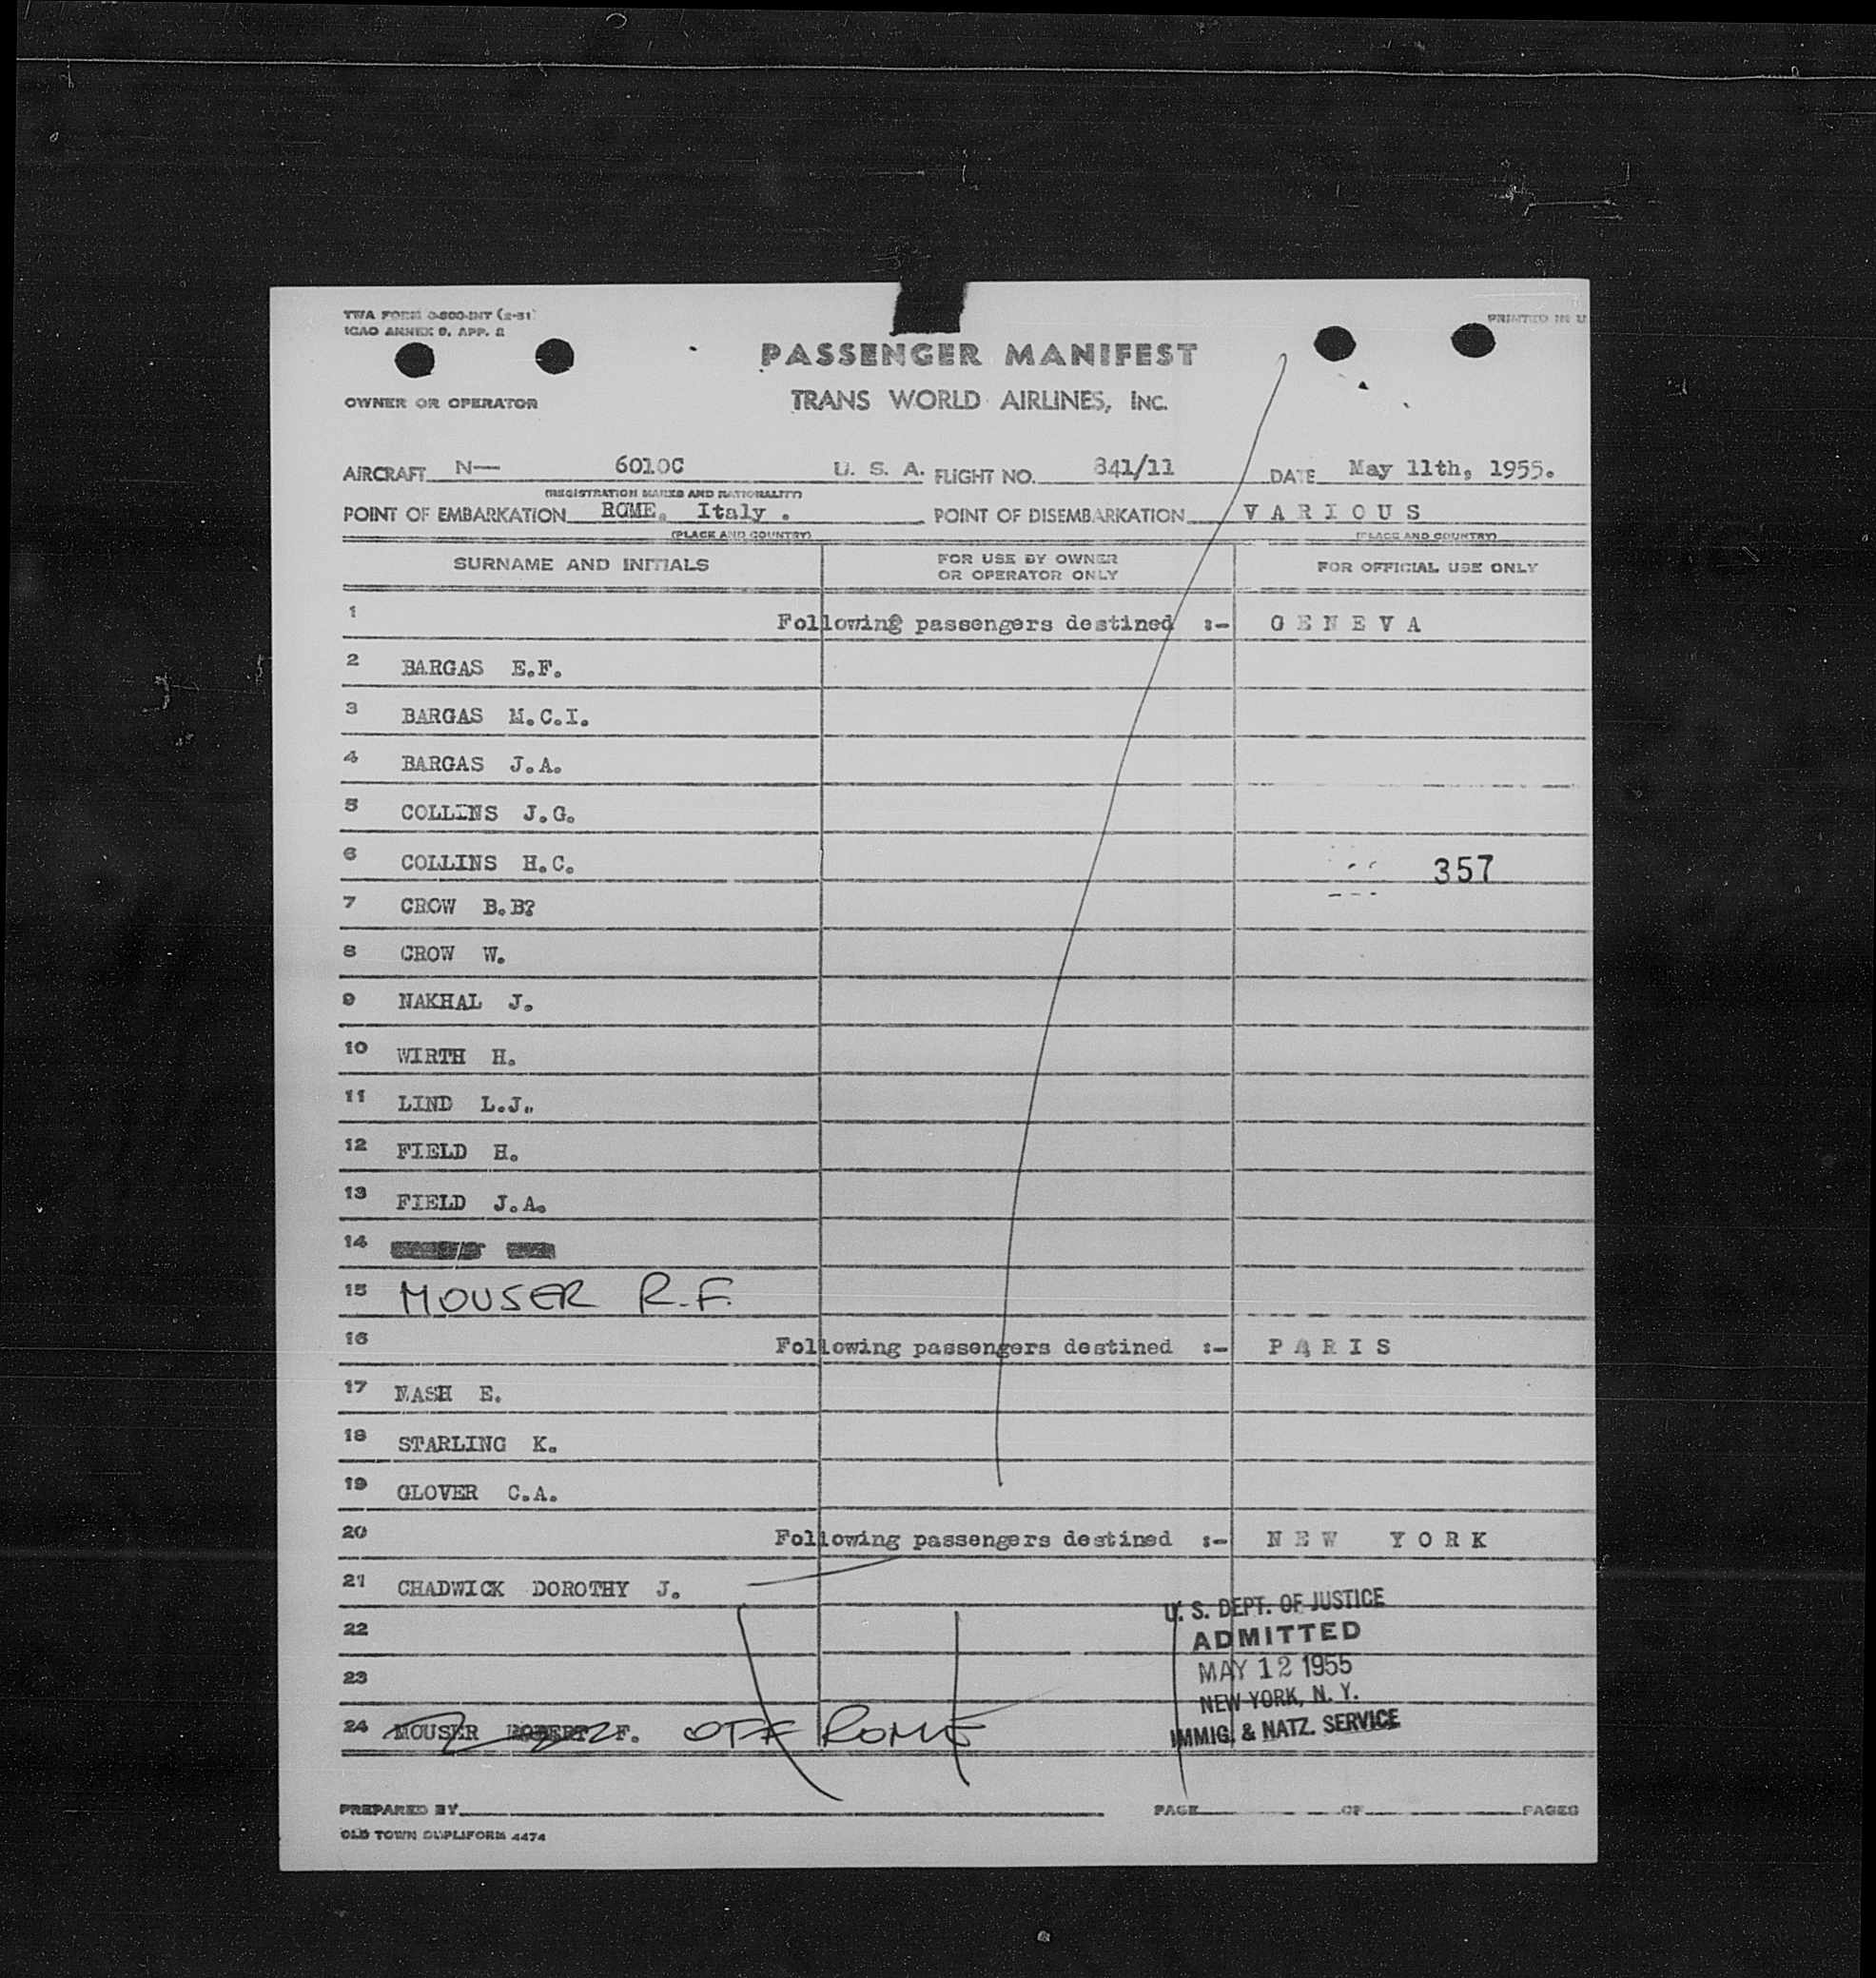 TWA FORM O-800-INT (2-51)
ICAO ANNEX 9, APP. 2
PRINTED IN U
PASSENGER MANIFEST
OWNER OR OPERATOR
TRANS WORLD AIRLINES, INC.
AIRCRAFT N— 6010C U. S. A. FLIGHT NO. 841/11 DATE May 11th, 1955.
(REGISTRATION MARKS AND NATIONALITY)
POINT OF EMBARKATION ROME, Italy . POINT OF DISEMBARKATION VARIOUS
(PLACE AND COUNTRY) (PLACE AND COUNTRY)
SURNAME AND INITIALS FOR USE BY OWNER OR OPERATOR ONLY FOR OFFICIAL USE ONLY
1 Following passengers destined :- GENEVA
2 BARGAS E.F.
3 BARGAS M.C.I.
4 BARGAS J.A.
5 COLLINS J.G.
6 COLLINS H.C. 357
7 CROW B.B?
8 CROW W.
9 NAKHAL J.
10 WIRTH H.
11 LIND L.J.
12 FIELD H.
13 FIELD J.A.
14
15 MOUSER R.F.
16 Following passengers destined :- PARIS
17 NASH E.
18 STARLING K.
19 GLOVER C.A.
20 Following passengers destined :- NEW YORK
21 CHADWICK DOROTHY J.
U. S. DEPT. OF JUSTICE
22
ADMITTED
MAY 12 1955
23
NEW YORK, N. Y.
24 MOUSER ROBERT F. OFF ROME
IMMIG. & NATZ. SERVICE
PREPARED BY PAGE OF PAGES
OLD TOWN DUPLIFORM 4474